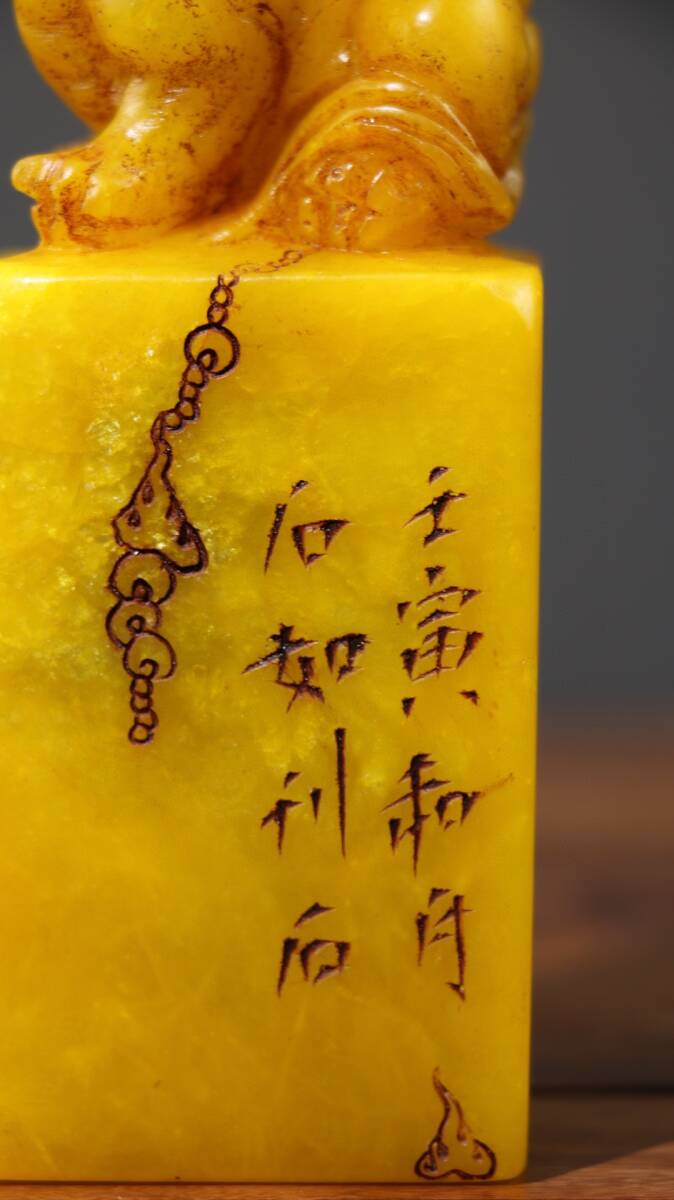 壬寅和月
石如刊石